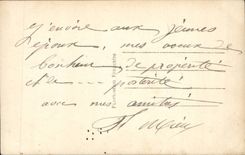 j'envoie aux jeunes
époux, mes vœux de
bonheur de propérité
et de --- postérité
avec mes amitiés